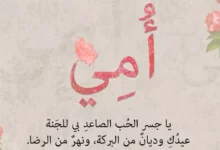 أُمِي
يا جسر الحُب الصاعدِ بي للجَنة
عيدُكِ وديانٌ من البركة، ونهرٌ من الرضا.